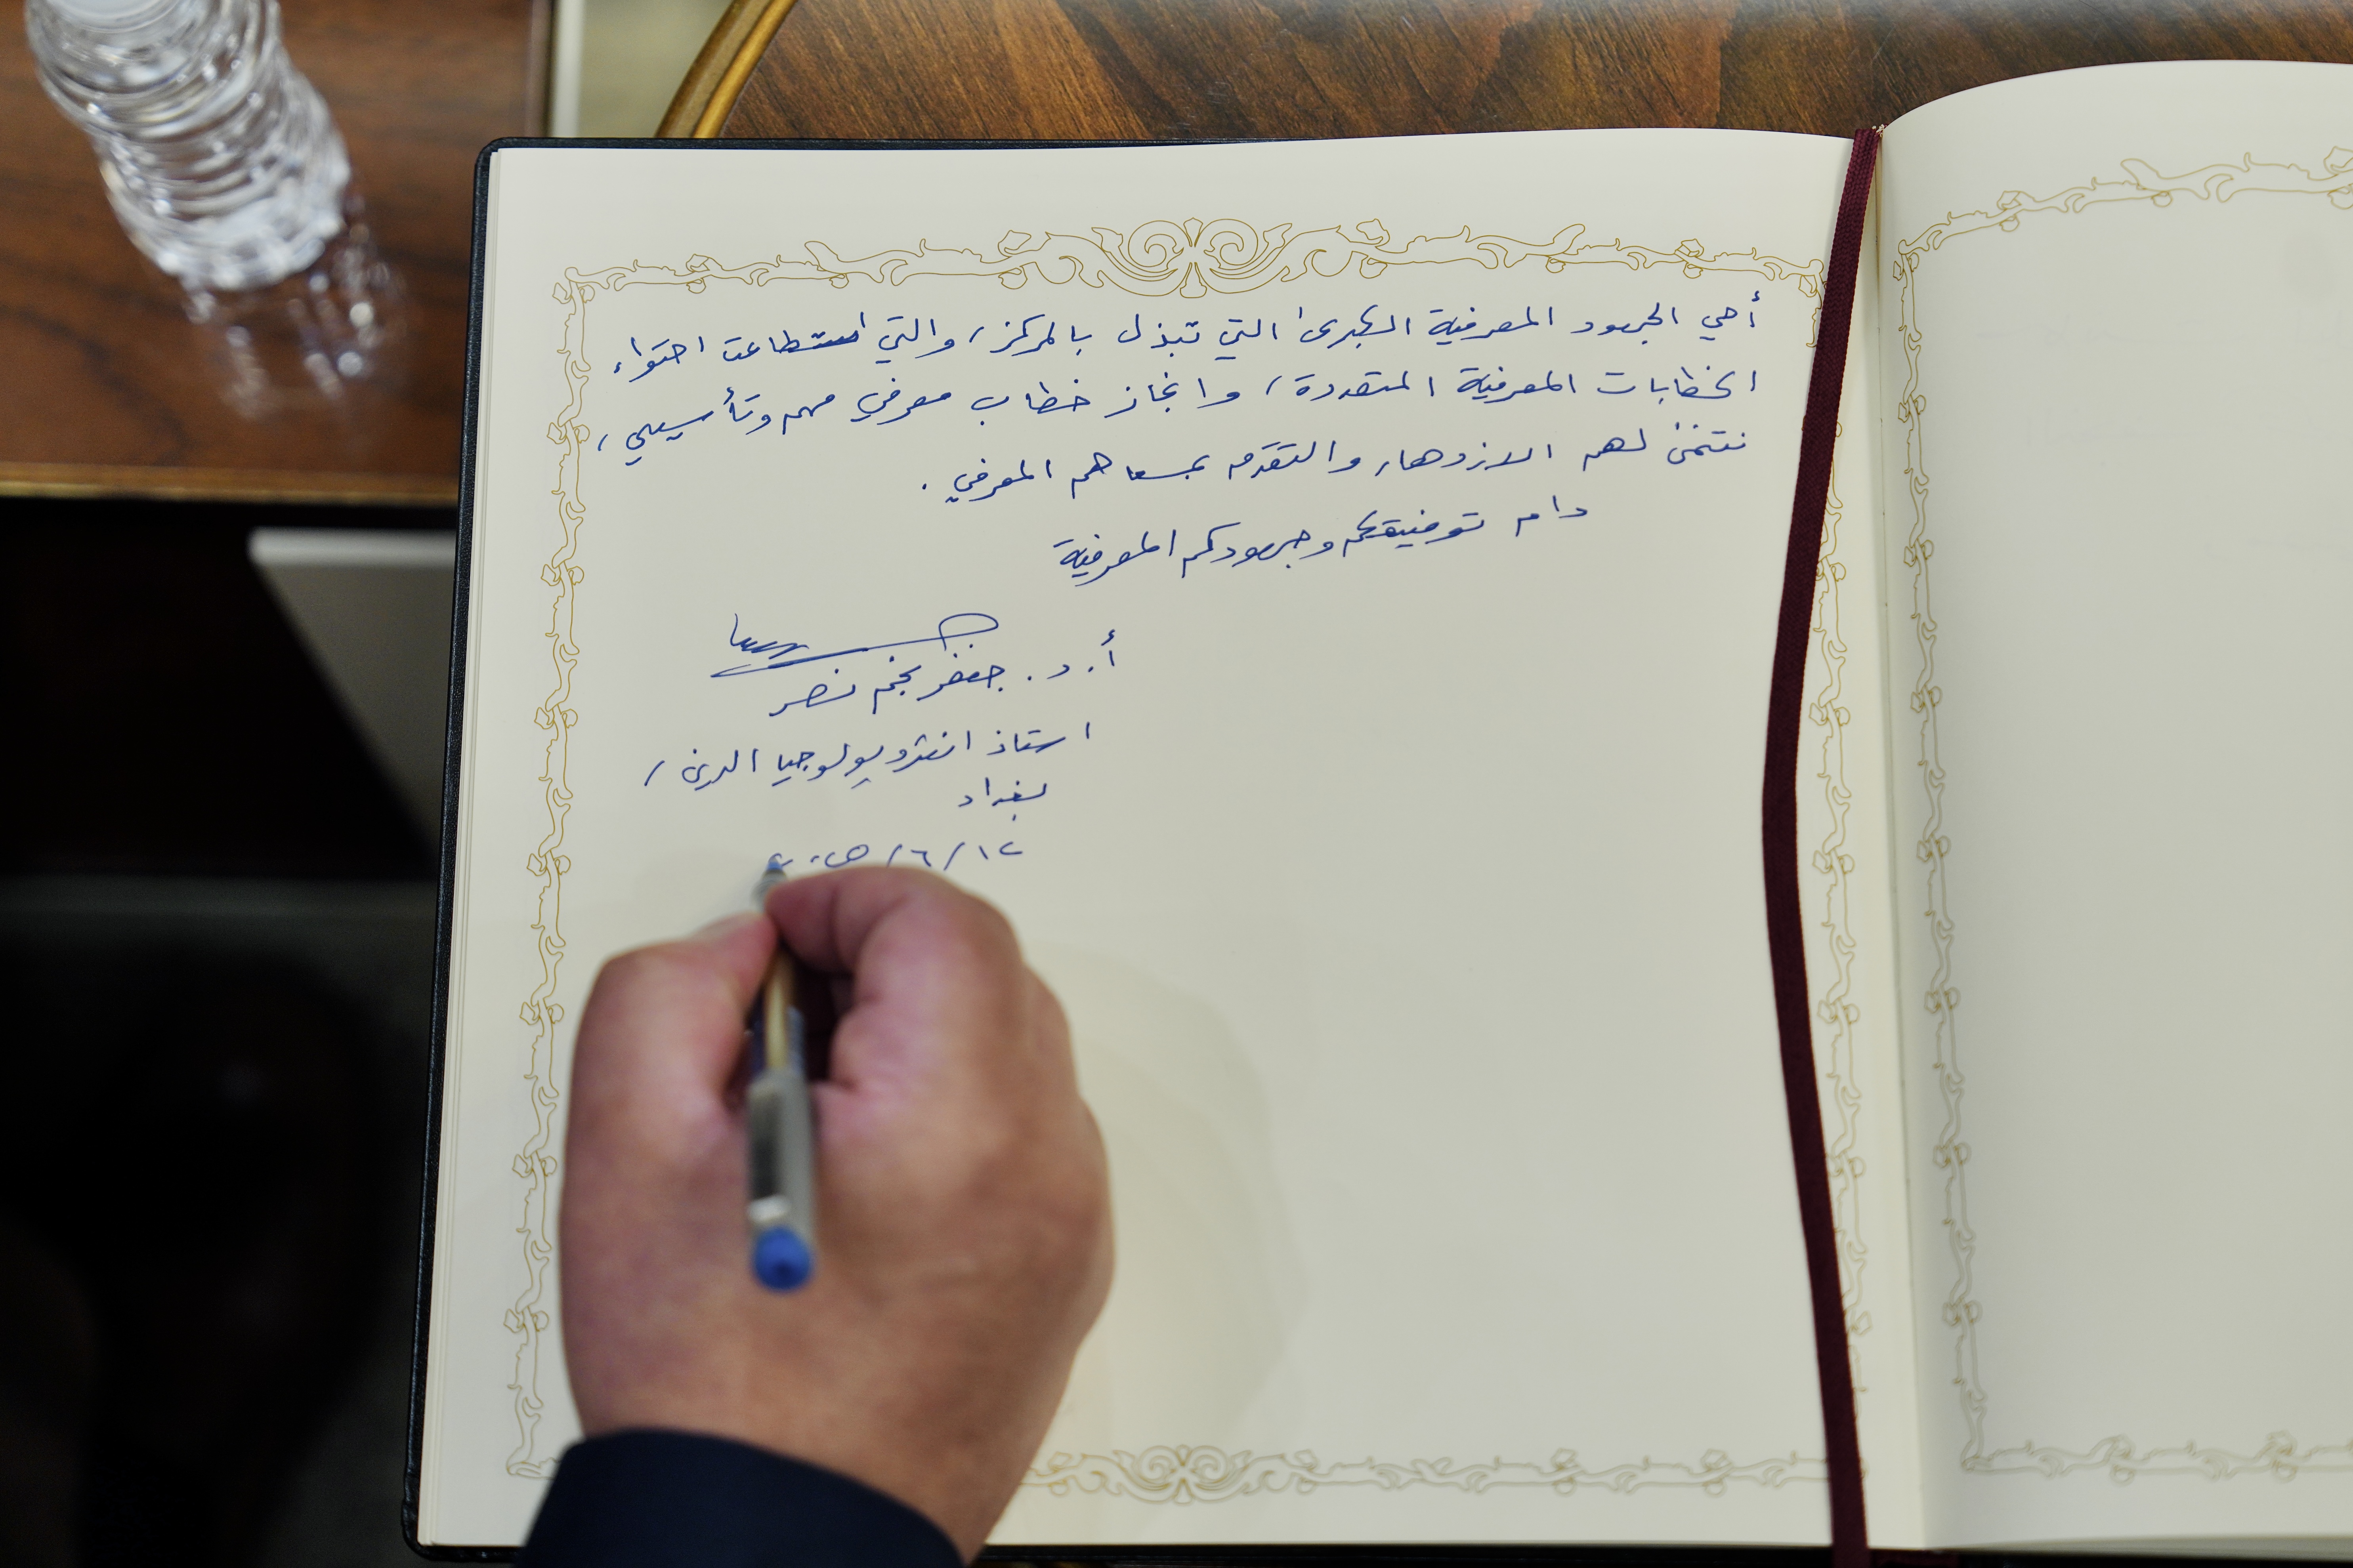 أحيي الجهود المعرفية الكبرى التي تبذل بالمركز، والتي استطاعت احتواء
الخطابات المعرفية المتعددة، وانجاز خطاب معرفي مهم وتأسيسي،
نتمنى لهم الازدهار والتقدم بمسعاهم المعرفي.
دام توفيقكم وجهودكم المعرفية
أ. د. جعفر نجم نصر
استاذ انثروبولوجيا الدين /
بغداد
١٢/٦/